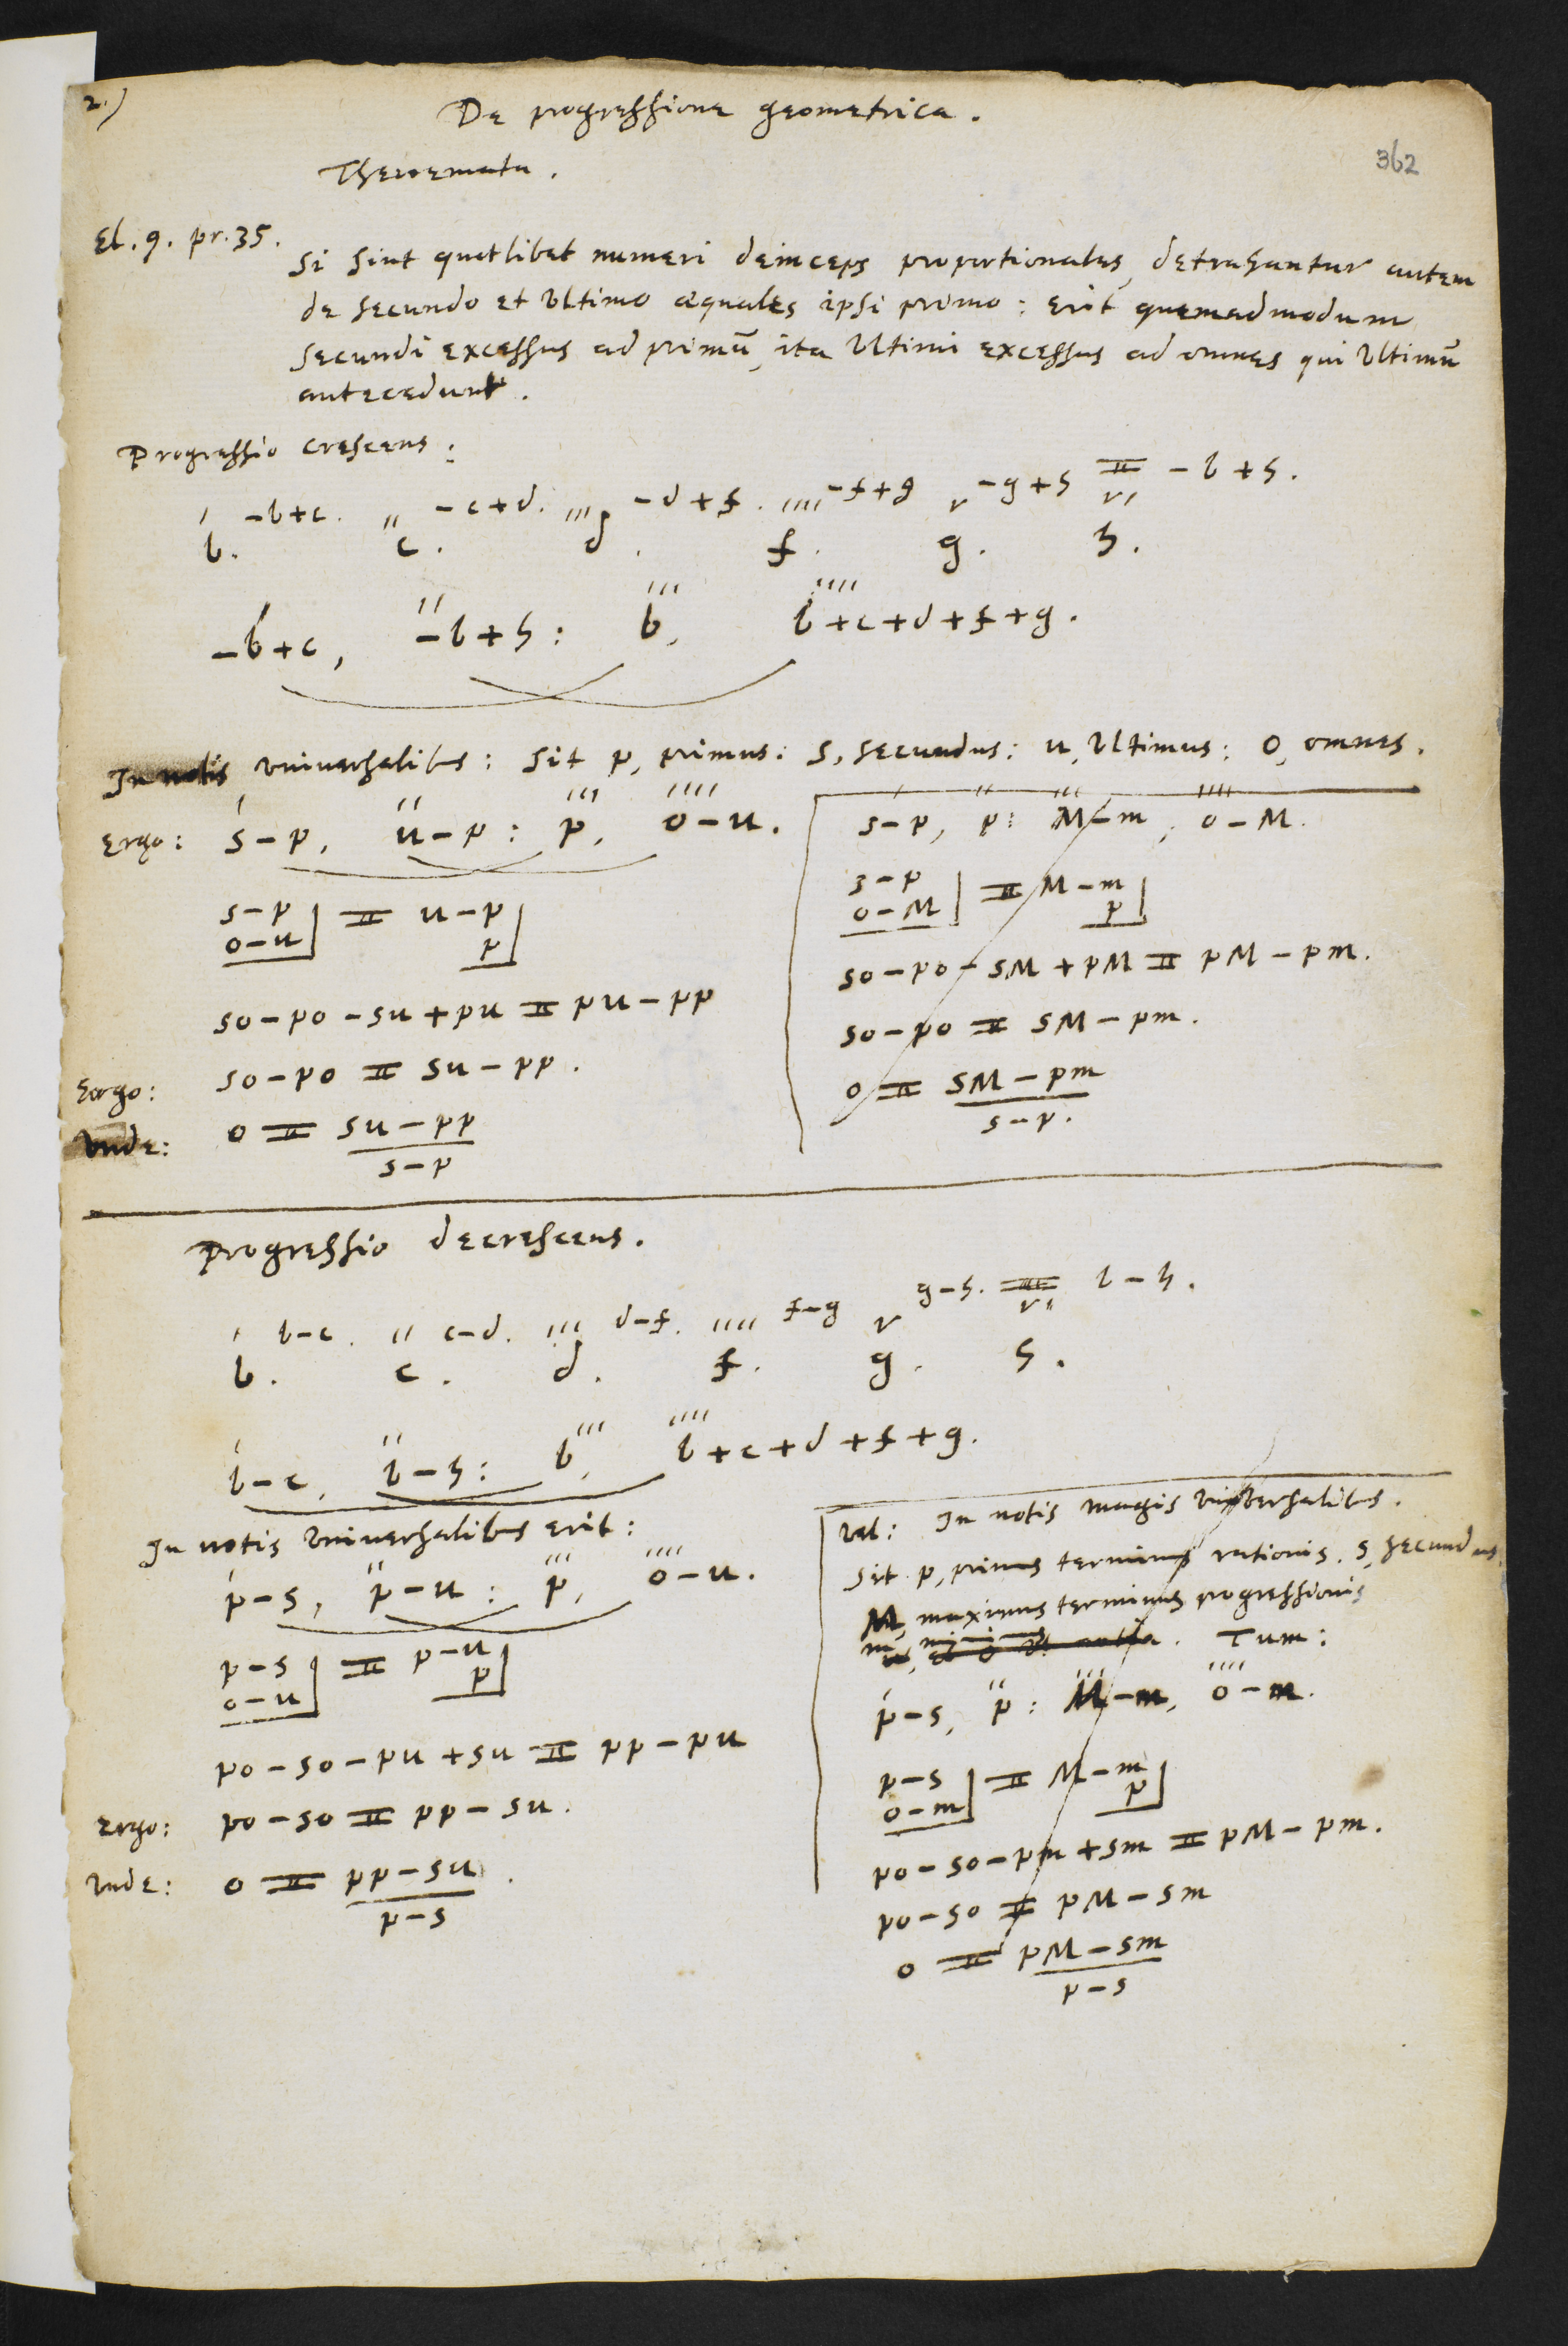 2.)
De progressione geometrica.
362
Theoremata.
El. 9. pr. 35.
Si sint quotlibet numeri deinceps proportionales, detrahantur autem
de secundo et ultimo æquales ipsi primo: erit quemadmodum
secundi excessus ad primū, ita ultimi excessus ad omnes qui ultimū
antecedunt.
Progressio crescens:
-b+c. -c+d. -d+f. -f+g -g+h = -b+h.
b. c. d. f. g. h.
-b+c, -b+h: b, b+c+d+f+g.
In notis universalibus: Sit p, primus: s, secundus: u, ultimus: o, omnes.
Ergo: s-p, u-p: p, o-u.
s-p = u-p
o-u p
so-po-su+pu = pu-pp
Ergo: so-po = su-pp.
Unde: o = su-pp
s-p
s-p, p: M-m, o-M.
s-p = M-m
o-M p
so-po-sM+pM = pM-pm.
so-po = sM-pm.
o = sM-pm
s-p.
Progressio decrescens.
b-c. c-d. d-f. f-g g-h. = b-h.
b. c. d. f. g. h.
b-c, b-h: b, b+c+d+f+g.
In notis universalibus erit:
p-s, p-u: p, o-u.
p-s = p-u
o-u p
po-so-pu+su = pp-pu
Ergo: po-so = pp-su.
Unde: o = pp-su.
p-s
vel: In notis magis universalibus.
Sit p, primus terminus rationis. s, secundus.
M, maximus terminus progressionis
m, minimus. Tum:
p-s, p: M-m, o-m.
p-s = M-m
o-m p
po-so-pm+sm = pM-pm.
po-so = pM-sm
o = pM-sm
p-s